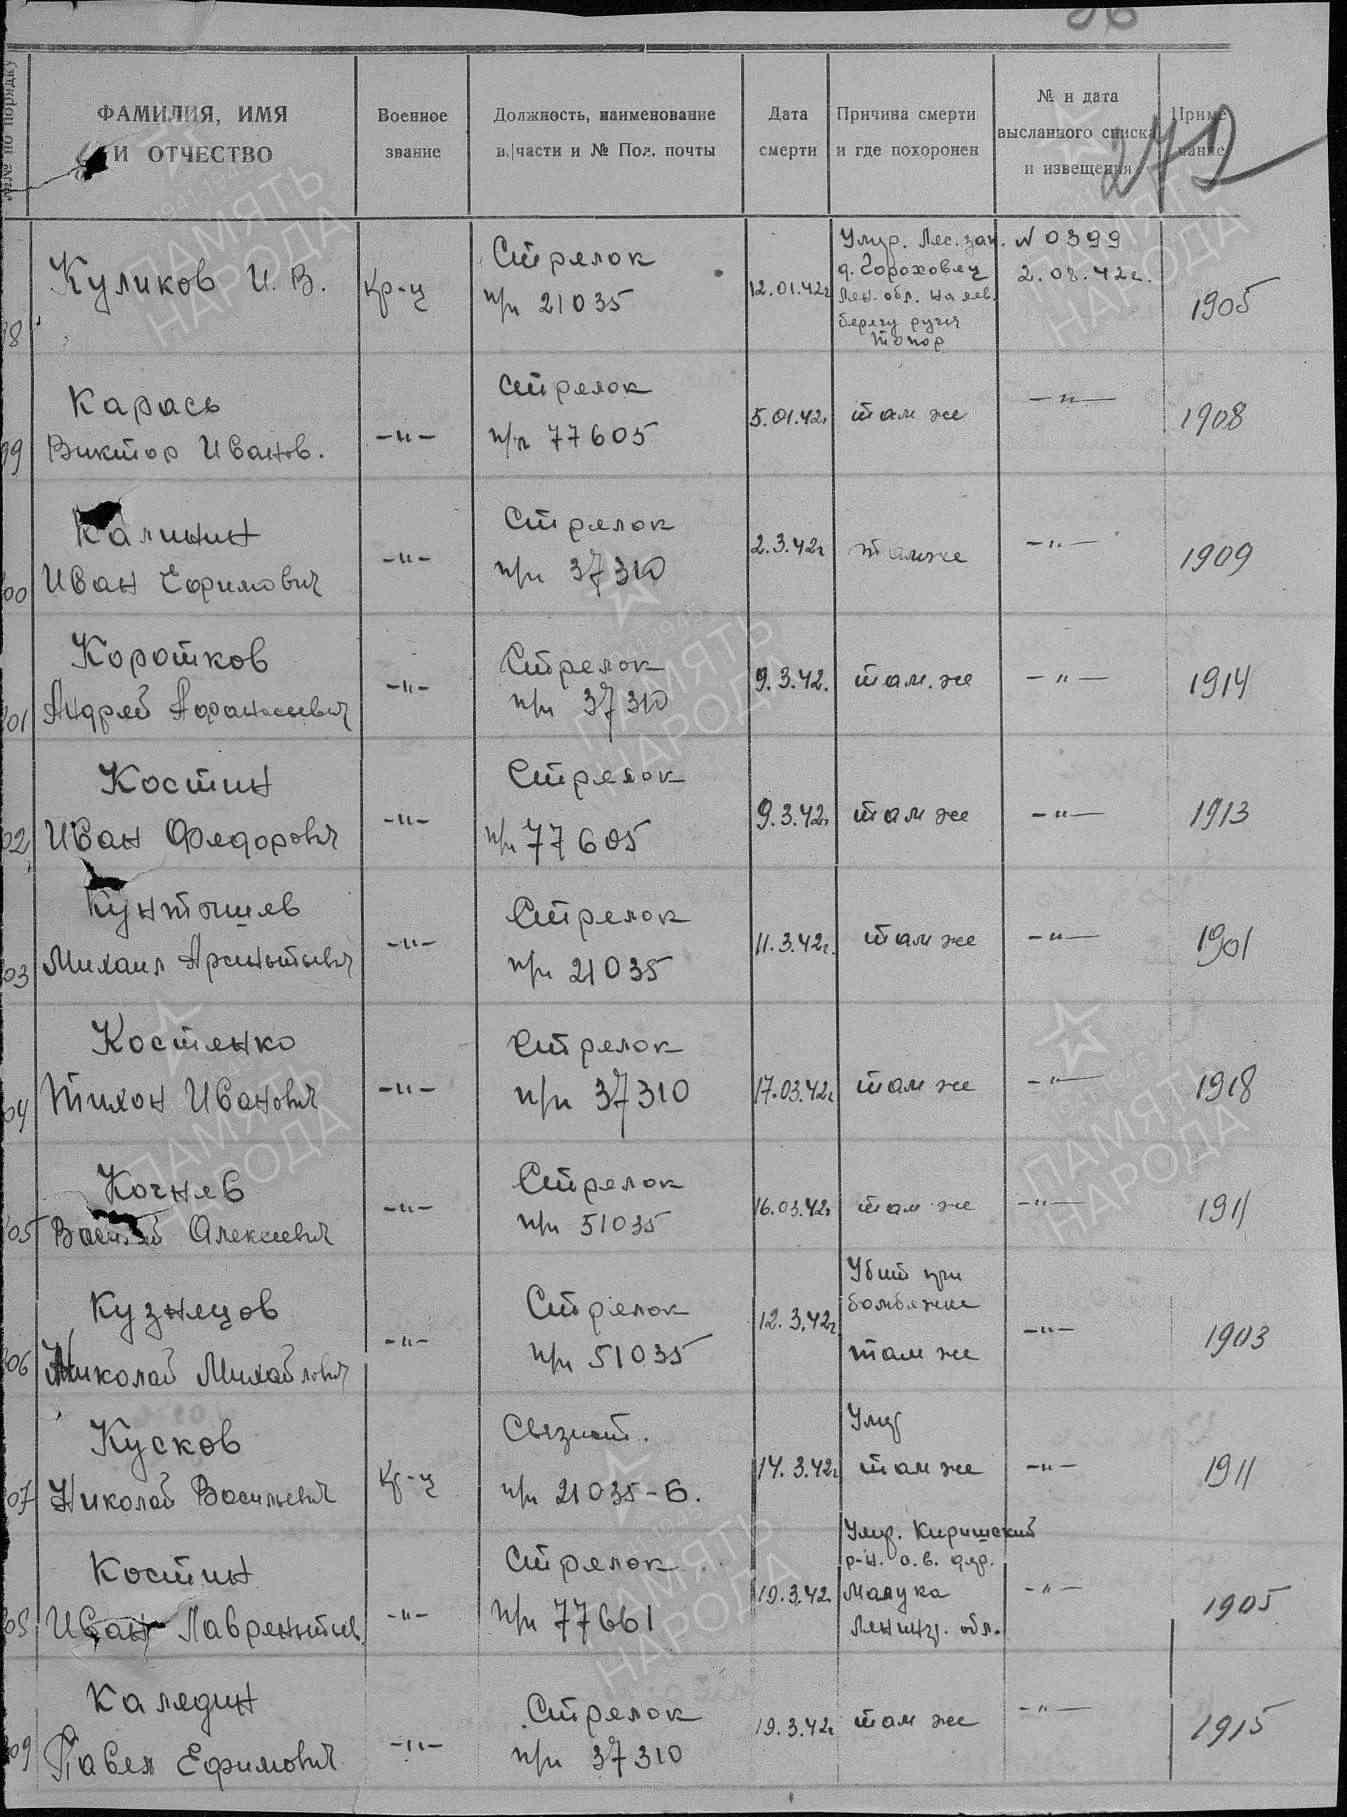 №№ по порядку
ФАМИЛИЯ, ИМЯ
И ОТЧЕСТВО
Военное
звание
Должность, наименование
в/части и № Пол. почты
Дата
смерти
Причина смерти
и где похоронен
№ и дата
высланного списка
и извещения
Приме
чание
272
Куликов И. В.
кр-ц
Стрелок
п/п 21035
12.01.42г
Умер. Лес. зап.
д. Гороховец
Лен. обл. на лев.
берегу ручья
Топор
N 0399
2.08.42г.
1905
99
Карась
Виктор Иванов.
-"-
Стрелок
п/п 77605
5.01.42г
там же
-"-
1908
00
Калинин
Иван Ефимович
-"-
Стрелок
п/п 37310
2.3.42г
там же
-"-
1909
01
Коротков
Андрей Афанасьевич
-"-
Стрелок
п/п 37310
9.3.42.
там же
-"-
1914
02
Костин
Иван Федорович
-"-
Стрелок
п/п 77605
9.3.42г
там же
-"-
1913
03
Кунтышев
Михаил
-"-
Стрелок
п/п 21035
11.3.42г.
там же
-"-
1901
04
Костенко
Тихон Иванович
-"-
Стрелок
п/п 37310
17.03.42г
там же
-"-
1918
05
Кочнев
Василий Алексеевич
-"-
Стрелок
п/п 51035
16.03.42г
там же
-"-
1911
06
Кузнецов
Николай Михайлович
-"-
Стрелок
п/п 51035
12.3.42г
Убит при
бомбежке
там же
-"-
1903
07
Кусков
Николай Васильевич
кр-ц
Связист.
п/п 21035-Б.
14.3.42г
Умер
там же
-"-
1911
Костин
Иван Лаврентьев.
-"-
Стрелок
п/п 77661
19.3.42
Умер. Киришский
р-н. о.в. дер.
Малука
Ленингр. обл.
-"-
1905
09
Калядин
Павел Ефимович
-"-
Стрелок
п/п 37310
19.3.42г
там же
-"-
1915
1941-1945
ПАМЯТЬ
НАРОДА